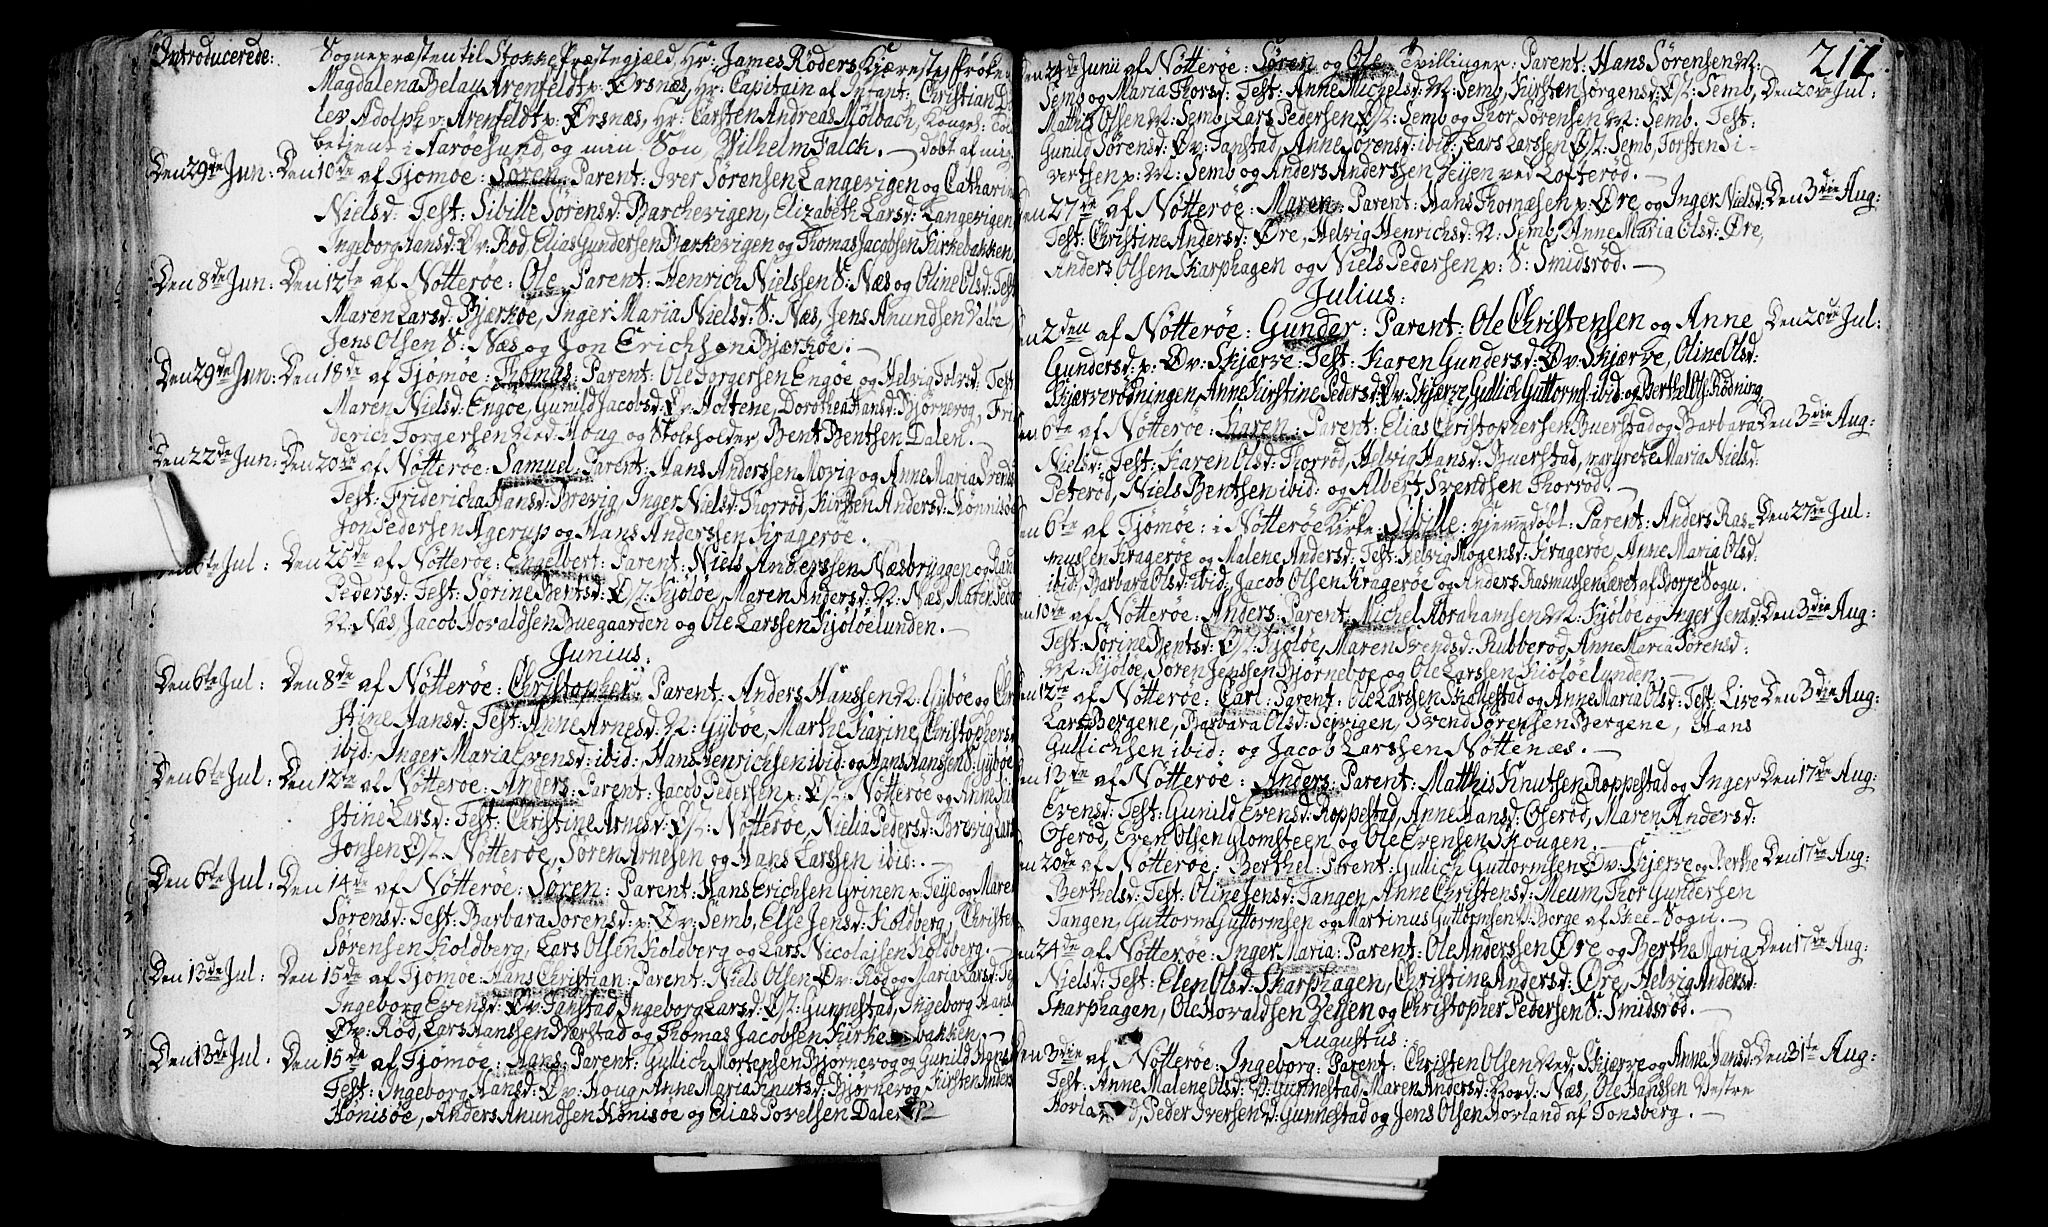 Introducerede: Sognepræsten til Stokke Præstegjæld, Hr: James Röders Kjæreste, Fröken
Magdalena Belau Arenfeldt p: Örsnæs, Hr: Capitain af Infant: Christian Det
lev Adolph v: Arenfeldt p: Örsnæs, Hr: Carsten Andreas Mölbach, Kongel: Told
betjent i Aaröesund, og min Sön, Wilhelm Falck. — döbt af mig.
Den 29de Jun: Den 10de af Tjömöe: Sören: Parent: Iver Sörensen Langevigen og Catharine
Nielsd: Test: Sibille Sörensd: Barchevigen, Elizabeth Larsd: Langevigen
Ingeborg Hansd: Öv: Rod, Elias Gundersen Barkevigen og Thomas Jacobsen Kirkebakken
Den 8de Jun: Den 12te af Nötteröe: Ole: Parent: Henrich Nielssen S: Næs og Oline Olsd: Test:
Maren Larsd: Bjærköe, Inger Maria Nielsd: S: Næs, Jens Anundsen Valöe,
Jens Olsen S: Næs og Jon Erichsen Bjærköe. —
Den 29de Jun: Den 18de af Tjömöe: Thomas: Parent: Ole Torgersen Engöe og Helvig Tolvsd: Test:
Maren Nielsd: Engöe, Gunild Jacobsd: Öv: Holtene, Dorothea Hansd: Bjørnevog, Fri
derich Torgersen Ned: Houg og Stoleholder Bent Bentsen Dalen. —
Den 22de Jun: Den 20de af Nötteröe: Samuel: Parent: Hans Anderssen Movig og Anne Maria Brends
Test: Fridericha Hansd: Brevig, Inger Nielsd: Thorröd, Kirsten Andersd: Hönnisöe
Jon Pedersen Agerup og Hans Anderssen Krageröe.
6te Jul: Den 25de af Nötteröe: Engelbert: Parent: Niels Anderssen Næsbryngen og
Pedersd: Test: Sörine Bertsd: Öst: Kjölöe, Maren Andersd: N: Næs, Maren
N: Næs, Jacob Hovaldsen Buegaarden og Ole Larssen Kjölöelunden. —
Junius:
Den 6te Jul: Den 8de af Nötteröe: Christopher: Parent: Anders Hanssen N: Gyböe og Chri
stine Hansd: Test: Anne Arnesd: N: Gyböe, Marthe Karine Christophersd:
ibid: Inger Maria Evensd: ibid: Hans Henrichsen ibid: og Hans Hanssen S: Gyböe
Den 6te Jul: Den 12te af Nötteröe: Anders: Parent: Jacob Pedersen p: Öst: Nötteröe og Anne
stine Larsd: Test: Christine Arnesd: Öst: Nötteröe, Nielia Pedersd: Brevig, Lars
Jonsen Öst: Nötteröe, Sören Arnesen og Hans Larssen ibid: —
Den 6te Jul: Den 14de af Nötteröe: Sören: Parent: Hans Erichsen Grinen p: Teye og Maren
Sörensd: Test: Barbara Sörensd: p: Öv: Semb, Else Jensd: Koldberg, Christen
Sörensen Koldberg, Lars Olsen Koldberg og Lars Nicolajsen Koldberg. —
Den 13de Jul: Den 15de af Tjömöe: Hans Christian: Parent: Niels Olsen Öv: Rød og Maria Larsd: Test
Ingeborg Evensd: Öv: Tanstad, Ingeborg Larsd: Öst: Gunnestad, Ingeborg Hans
Öv: Röd, Lars Hanssen Hærstad og Thomas Jacobsen Kirkebakken. —
Den 13de Jul: Den 15de af Tjömöe: Hans: Parent: Gullich Mortensen Bjørnevog og Gunild Hansd
Test: Ingeborg Hansd: Öv: Houg, Anne Maria Knutsd: Bjørnevog, Kirsten Anders
Hönisöe, Anders Anundsen Hönisöe og Elias Torelsen Dalen.
211
24de Junii af Nötteröe: Sören og Ole Tvillinger: Parent: Hans Sörensen N:
Semb og Maria Thorsd: Test: Anne Michelsd: N: Semb, Kirsten Jörgensd: Öst: Semb, Den 20de Jul:
Mathis Olsen N: Semb, Lars Pedersen Öst: Semb og Thor Sörensen N: Semb. Test:
Gunild Sörensd: Öv: Tanstad, Anne Sörensd: ibid: Lars Larssen Öst: Semb, Torsten Si-
vertsen p: N: Semb og Anders Anderssen Teijen ved Lofteröd. —
27de af Nötteröe: Maren: Parent: Hans Thomæsen p: Öre og Inger Nielsd: Den 3die Aug:
Test: Christine Andersd: Öre, Helvig Henrichsd: N: Semb, Anne Maria Olsd: Öre,
Anders Olsen Skarphagen og Niels Pedersen p: S: Smidsröd. —
Julius:
2den af Nötteröe: Gunder: Parent: Ole Christensen og Anne Den 20de Jul:
Gundersd: p: Öv: Skjærve: Test: Karen Gundersd: Öv: Skjærve, Oline Olsd:
Skjærverödningen, Anne Kirstine Pedersd: Öv: Skjærve, Gullich Guttorms: ibid: og Berthel Ols: Rödning
6te af Nötteröe: Karen: Parent: Elias Christophersen Buerstad og Barbara Den 3die Aug:
Nielsd: Test: Karen Olsd: Thorröd, Helvig Hansd: Buerstad, Margrete Maria Nielsd:
Peteröd, Niels Bentsen ibid: og Albert Svendsen Thorröd. —
6te af Tjömöe: i Nötteröe Kirke: Sibille: hjemmedöbt: Parent: Anders Ras- Den 27de Jul:
mussen Krageröe og Malene Andersd: Test: Helvig Mogensd: Krageröe, Anne Maria Olsd:
ibid: Barbara Olsd: ibid: Jacob Olsen Krageröe og Anders Rasmussen af Borre Sogn.
10de af Nötteröe: Anders: Parent: Michel Abrahamsen N: Kjölöe og Inger Jensd: Den 3die Aug:
Test: Sörine Bentsd: Öst: Kjölöe, Maren Svendsd: Rubberöd, Anne Maria Sörensd:
N: Kjölöe, Sören Jenssen Bjørneboe og Ole Larssen Kjölöelunden. —
12te af Nötteröe: Carl: Parent: Ole Larssen Skallestad og Anne Maria Olsd: Test: Live Den 3die Aug:
Larsd: Bergene, Barbara Olsd: Sevigen, Svend Sörensen Bergene, Hans
Gullichsen ibid: og Jacob Larssen Nöttenæs. —
13de af Nötteröe: Anders: Parent: Matthis Knutsen Roppestad og Inger Den 17de Aug:
Evensd: Test: Gunild Evensd: Roppestad, Anne Hansd: Oseröd, Maren Andersd:
Oseröd, Even Olsen Glomsteen og Ole Evensen Skougen. —
20de af Nötteröe: Berthel: Parent: Gullich Guttormsen Öv: Skjærve og Berthe Den 17de Aug:
Berthelsd: Test: Oline Jensd: Tangen, Anne Christensd: Meum, Thor Gundersen
Tangen, Guttorm Guttormsen og Martinus Guttormsen N: Borge af Skee-Sogn. —
24de af Nötteröe: Inger Maria: Parent: Ole Anderssen Öre og Berthe Maria Den 17de Aug:
Nielsd: Test: Elen Olsd: Skarphagen, Christine Andersd: Öre, Helvig Andersd:
Skarphagen, Ole Hovaldsen Zeijen og Christopher Pedersen S: Smidsröd. —
Augustus:
3die af Nötteröe: Ingeborg: Parent: Christen Olsen Ned: Skjærve og Anne Hansd: Den 31te Aug:
Test: Anne Malene Olsd: V: Gunnestad, Maren Andersd: Nord: Næs, Ole Hanssen Vestre
Horland, Peder Iversen V: Gunnestad og Jens Olsen Horland af Tonsberg. —